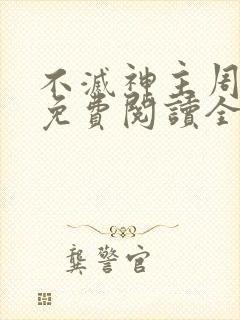 不滅神主周
免費閱讀全
龔警官